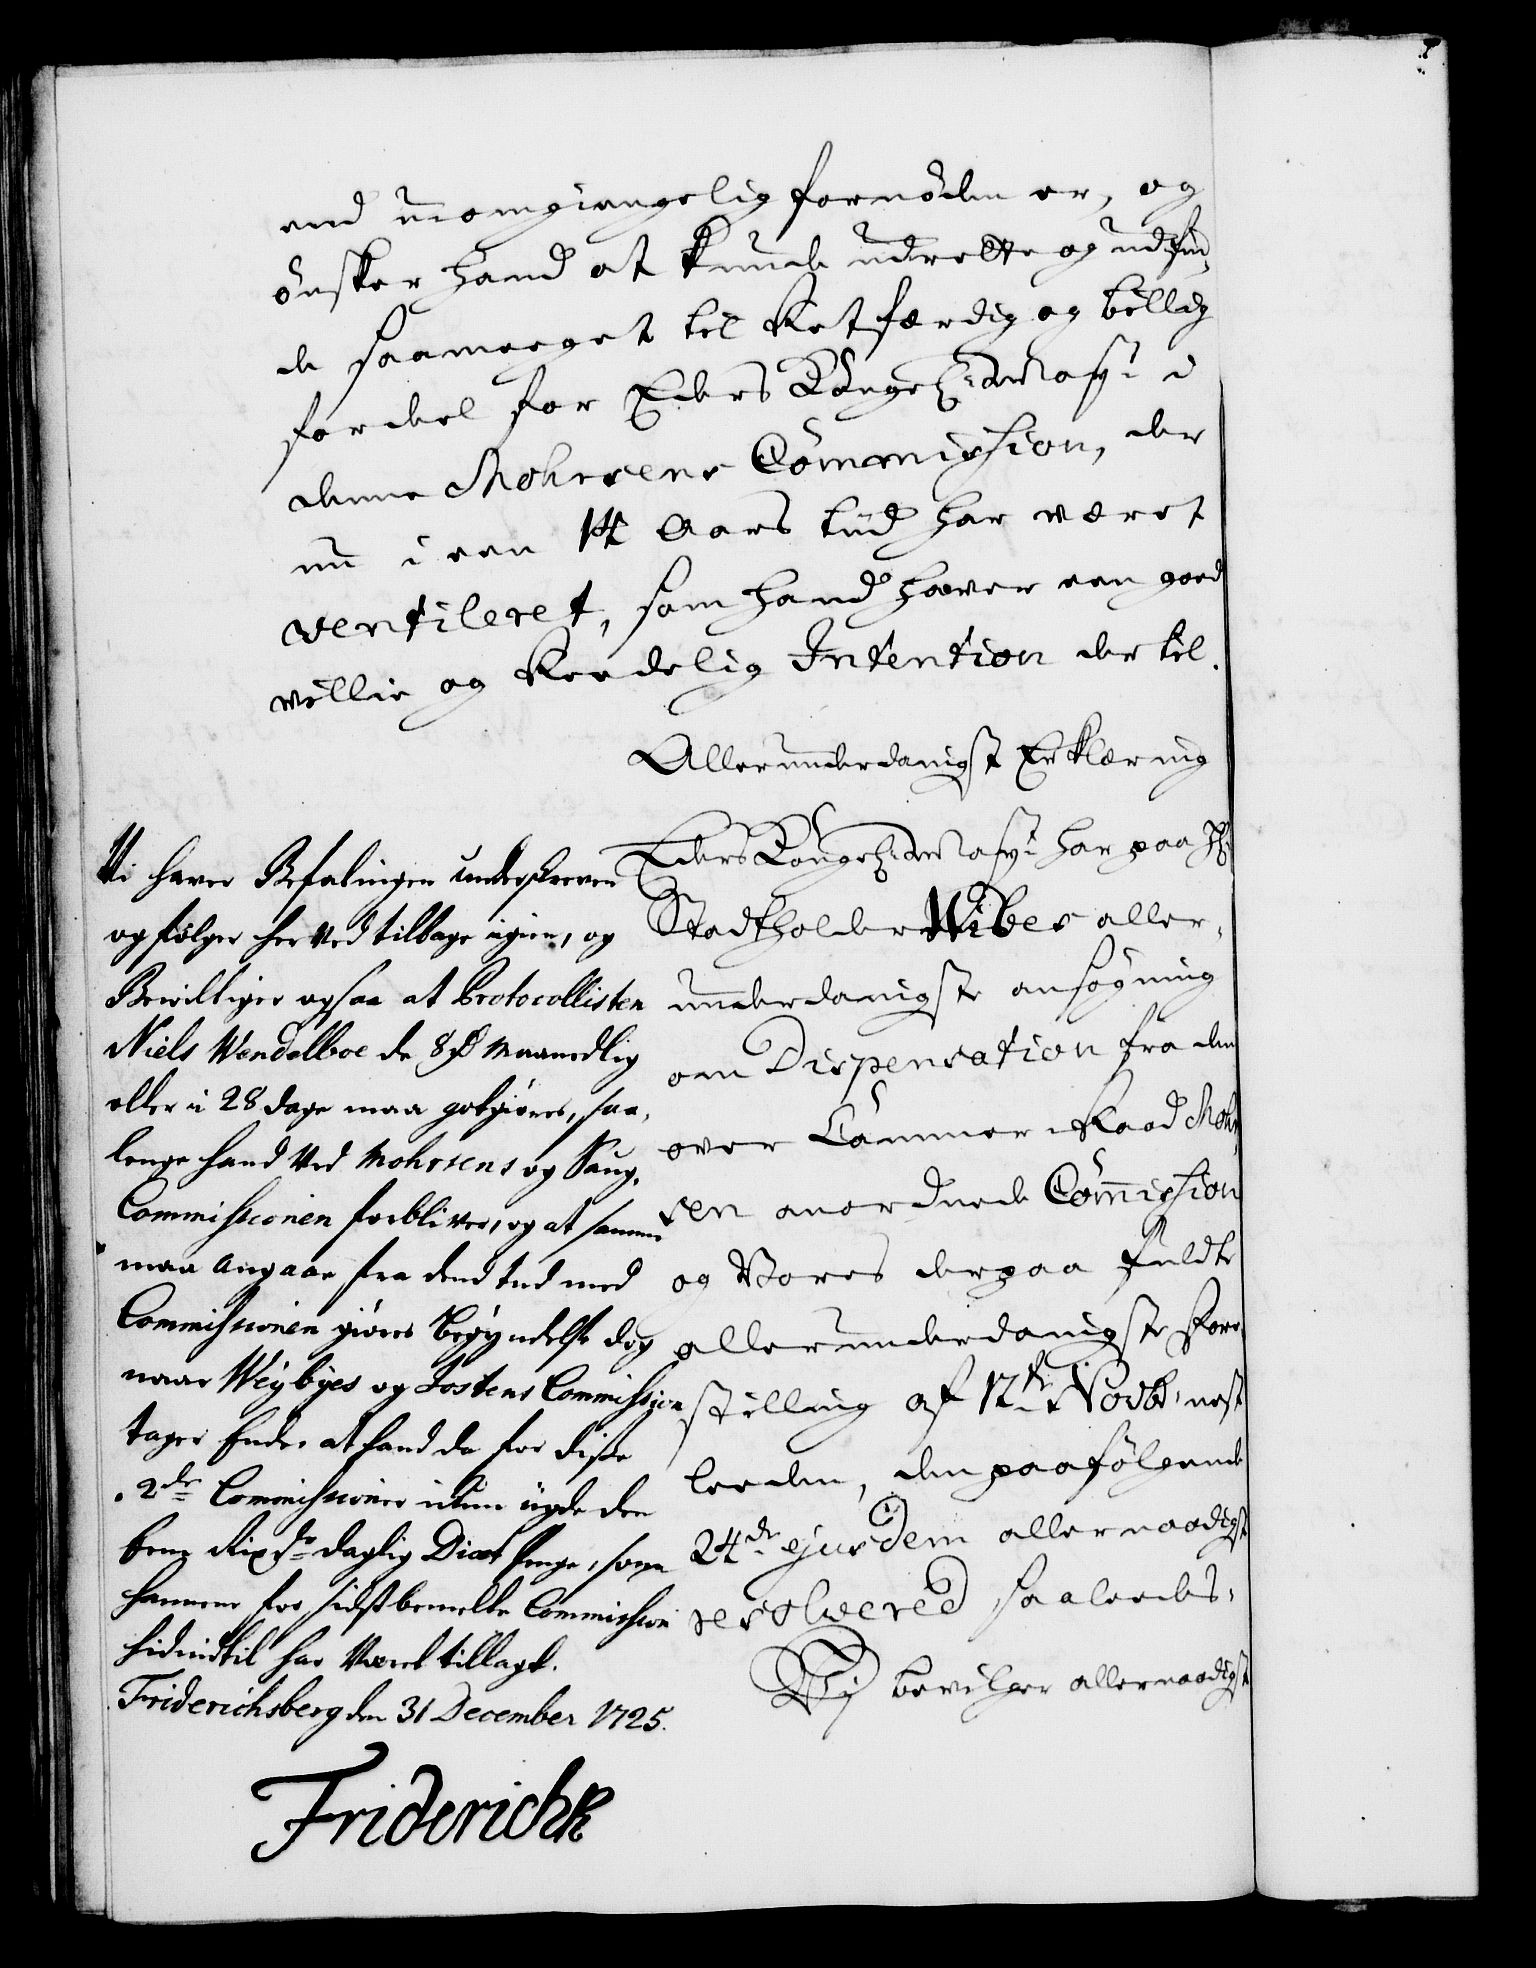 end uomgiengelig fornöden er, og
önsker hand at kunde udrette og udfin,
de saameeget til Retfærdig og billig
fordeel for Eders Kongel: May:t i
denne Mohrsens Commission, der
nu i een 14 Aars tiid har været
ventileret, som hand haver een goed
villie og Reedelig Intention der til.
Allerunderdanigst Erklæring
Eders Kongel: May:t har paa H:
Stadtholder Wibes aller,
underdanigste ansögning
om Dispensation fra den
over Cammer Raad Mohr,
sen anordnede Commission
og Vores derpaa fuldte
allerunderdanigste Fore,
stilling af 12te Novbr: nest
leeden, den paafölgende
24de ejusdem allernaadigst
resolvered saaleedes:
Vj bevilger allernaadigst
Vi haver Befalingen underskreven
og følger her ved tilbage igien, og
Bewilliger ogsaa at Protocollisten
Niels Wendelboe de 8 rd Maanedlig
eller i 28 dage maa gotgiöres, saa,
lenge hand ved Mohrsens og Saug,
Commissionen forbliver, og at samme
maa angaae fra dend tid med
Commissionen giöres Begÿndelse dog
naar Weÿbÿes og Tostens Commission
tager Ende, at hand da for disse
2de Commissioner icun nyde den
bem Rixdr daglig Diæt Penge, som
hannem for sidstbemelte Commission
hidindtil har Været tillagt.
Friderichsberg den 31 December 1725.
Friderich R